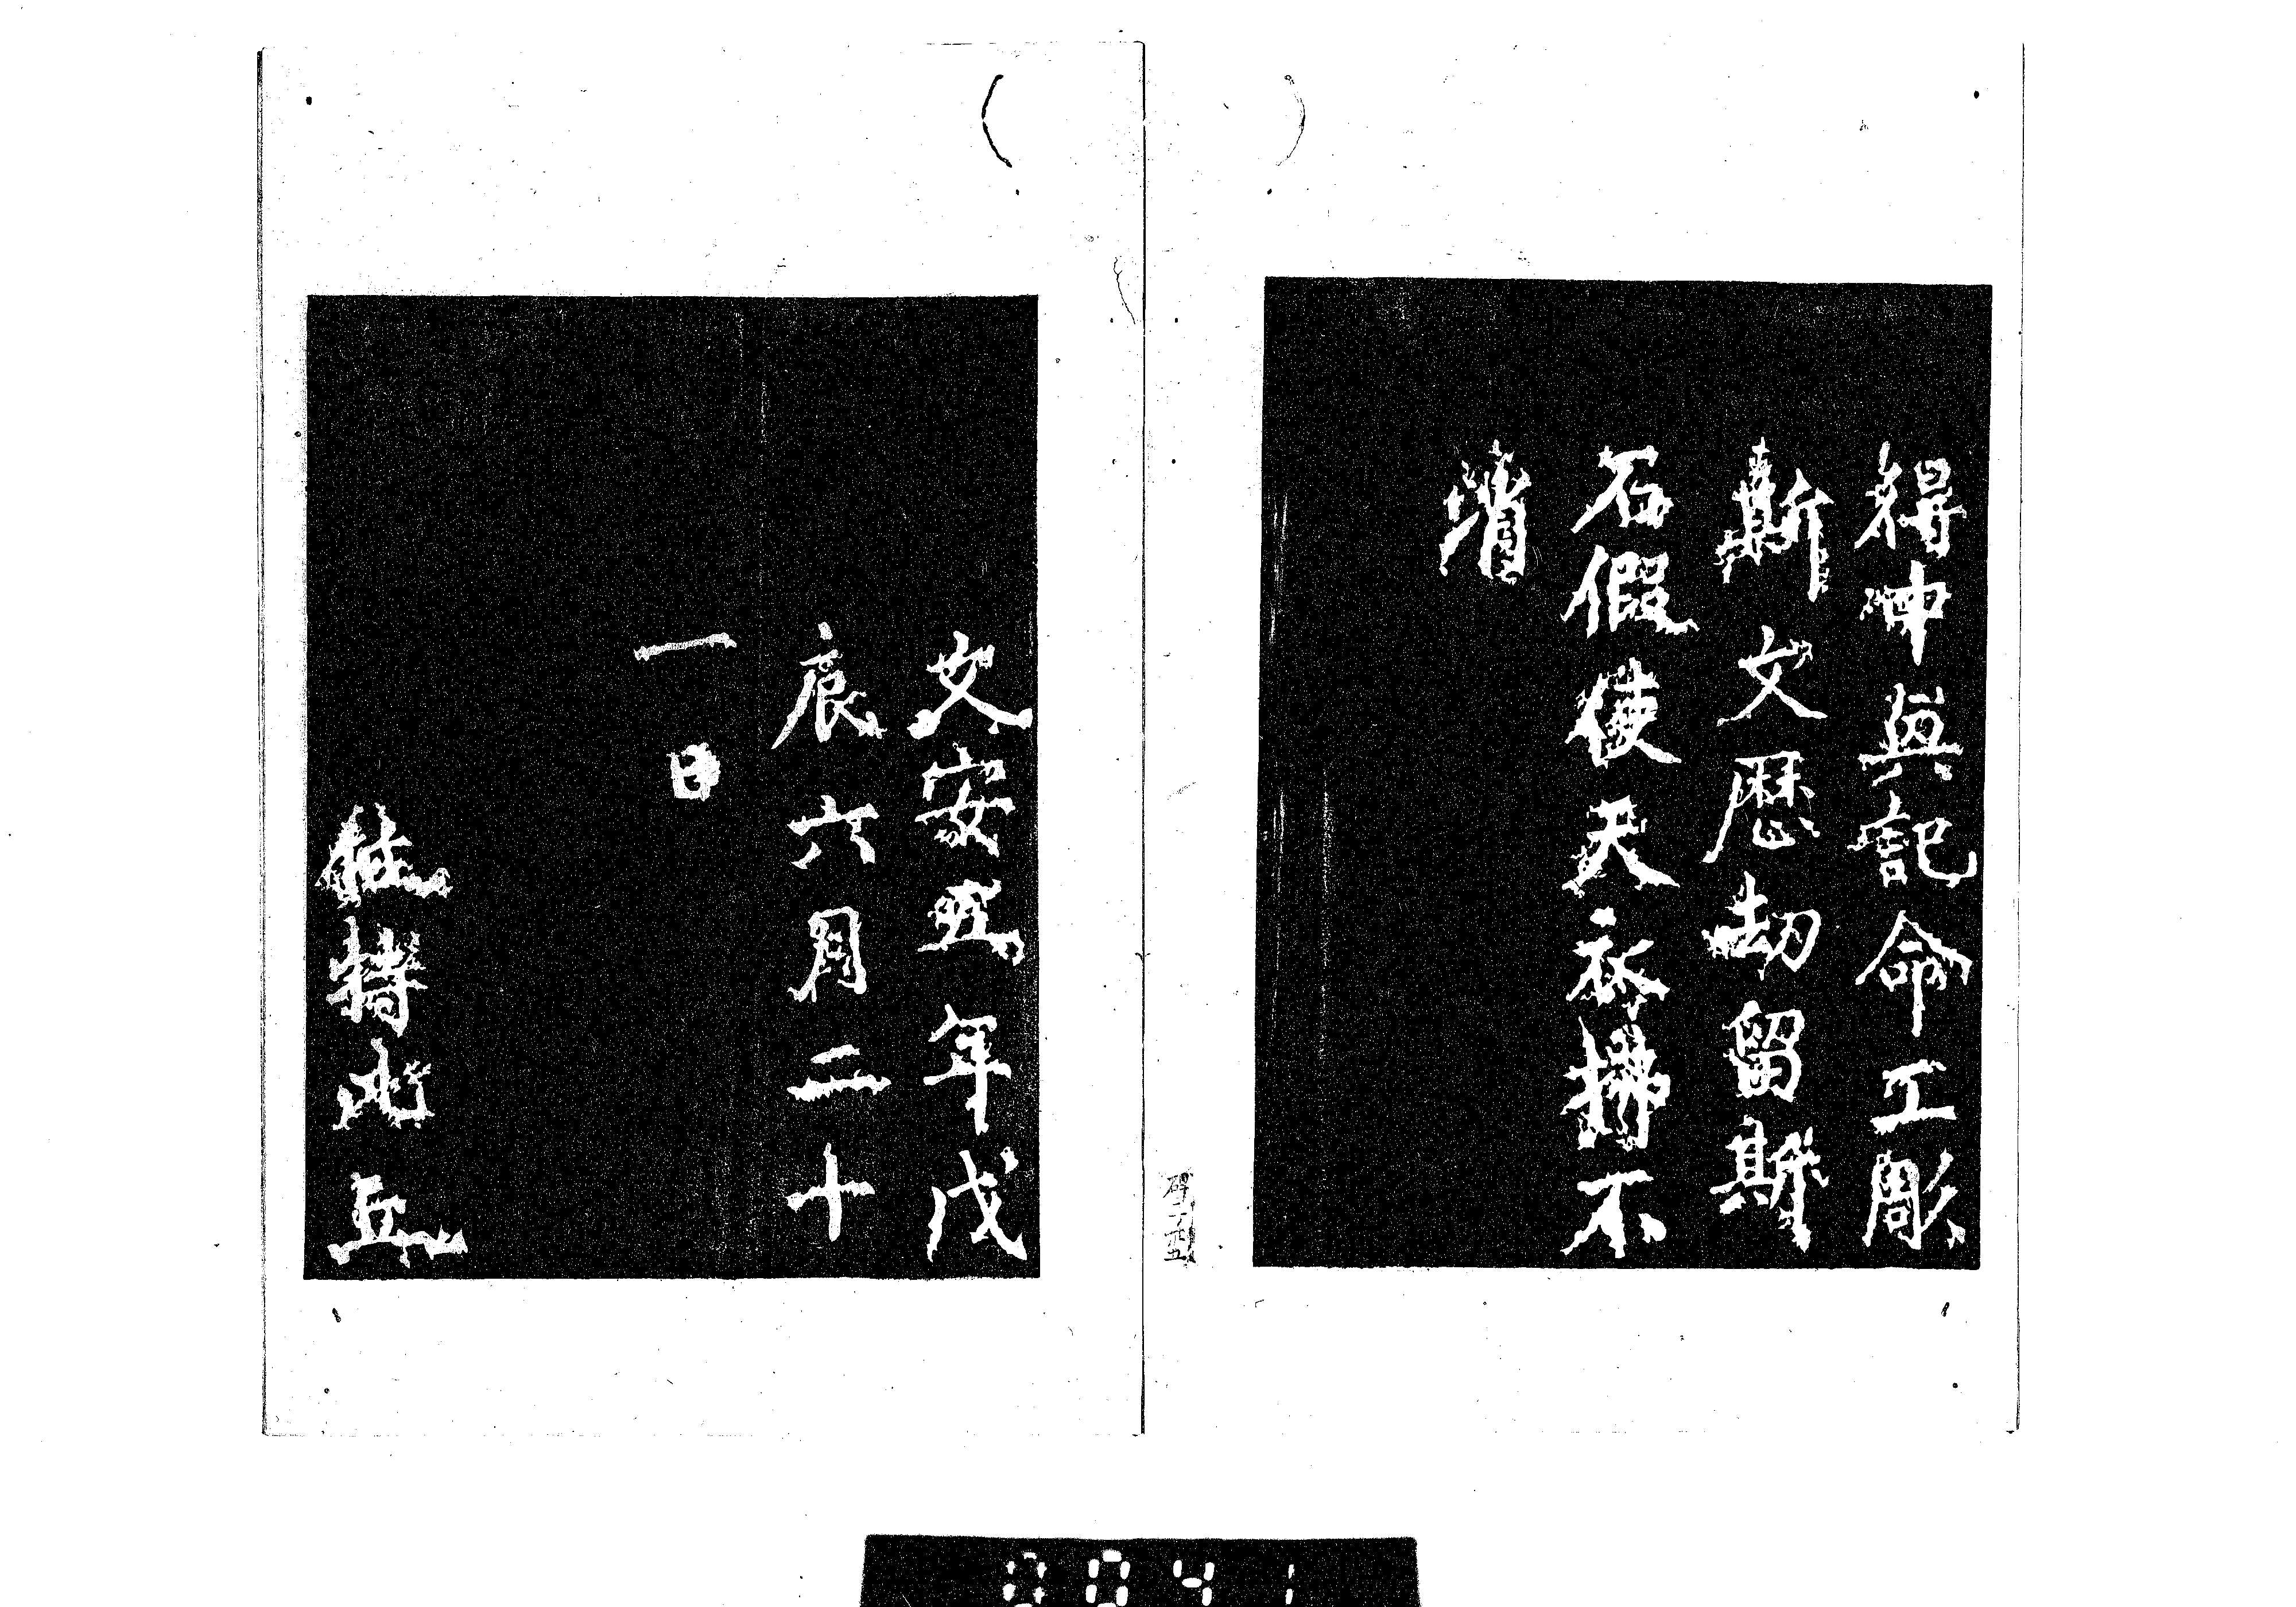 得申與記命工彫
斯文歴劫留斯
石假使天衣拂不
消
文安五年戊
辰六月二十
一日
住持比丘
0041